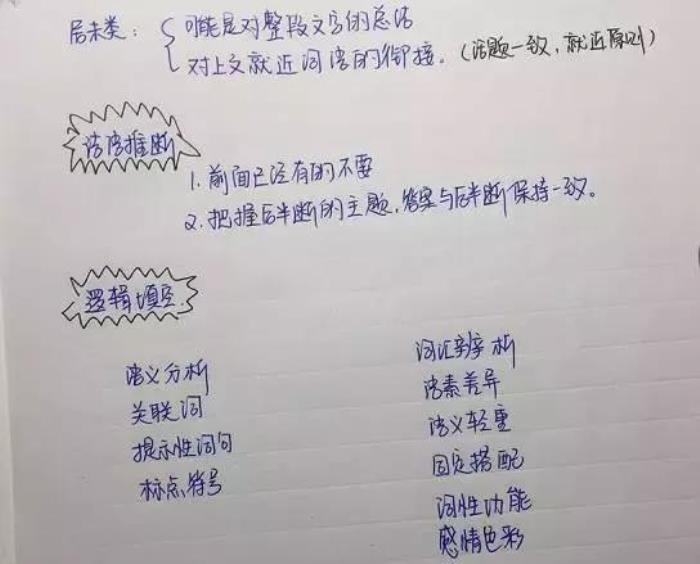 居末类：可能是对整段文字的总结
对上文就近词语的衔接。（话题一致，就近原则）
语段推断
1. 前面已经有的不要
2. 把握后半断的主题，答案与后半断保持一致。
逻辑填空
语义分析
关联词
提示性词句
标点符号
词汇辨析
语素差异
语义轻重
固定搭配
词性功能
感情色彩